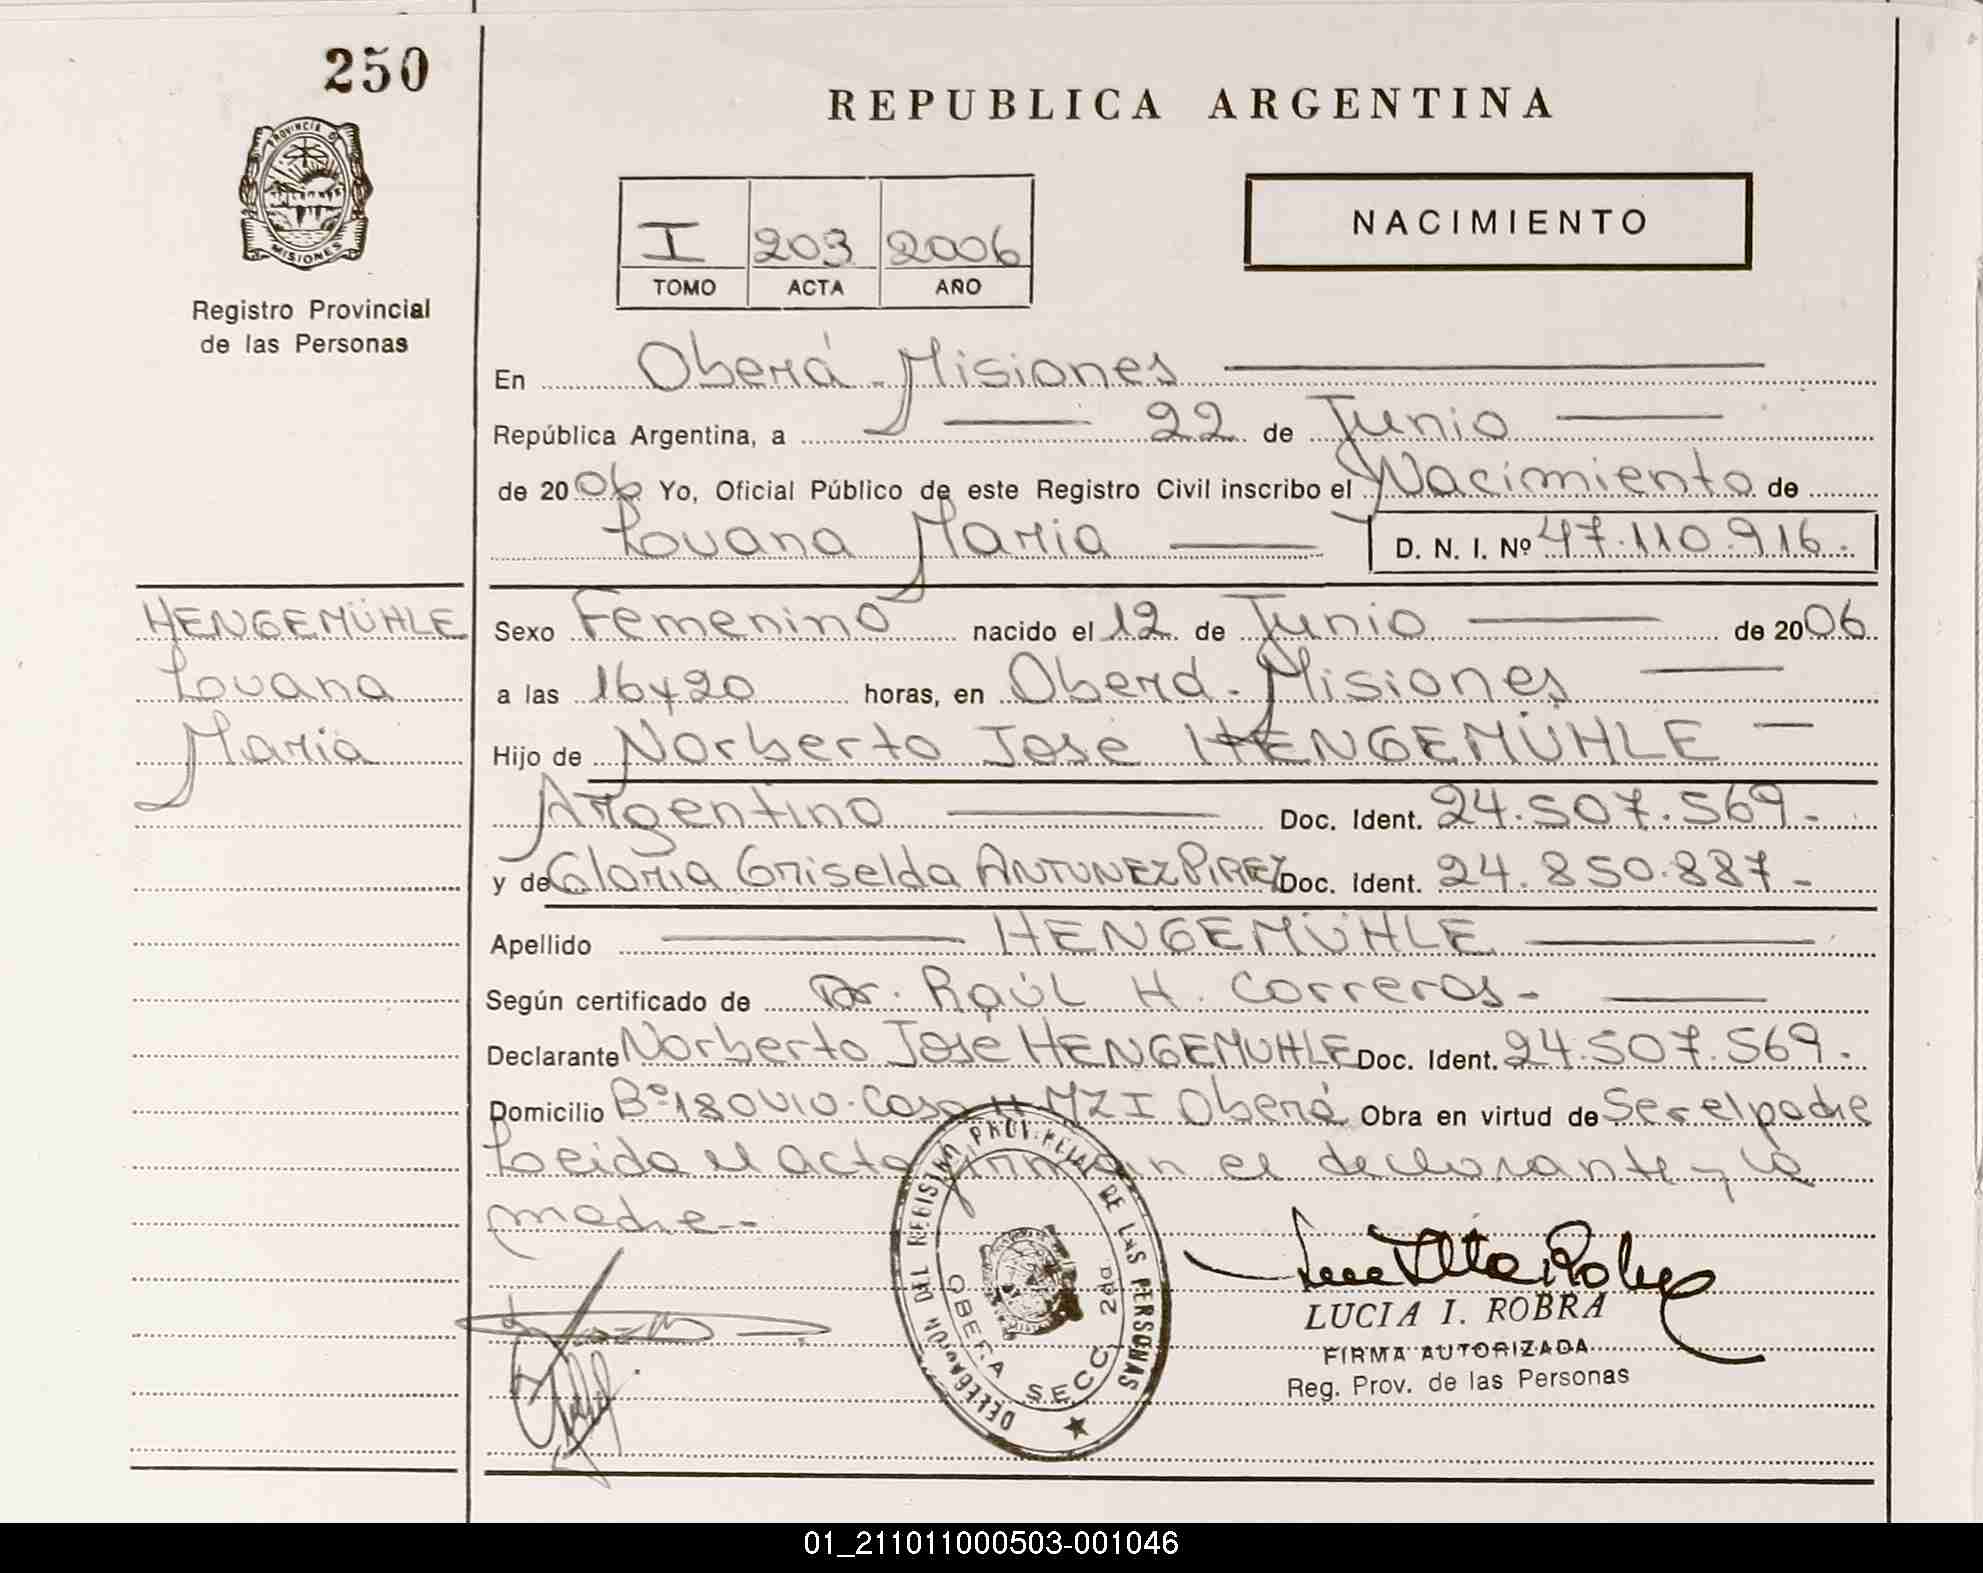 250
REPUBLICA ARGENTINA
PROVINCIA DE MISIONES
NACIMIENTO
I 203 2006
TOMO ACTA AÑO
Registro Provincial
de las Personas
En Oberá - Misiones
República Argentina, a 22 de Junio
de 2006 Yo, Oficial Público de este Registro Civil inscribo el Nacimiento de
Louana Maria D. N. I. Nº 47.110.916.
HENGEMÜHLE
Louana
Maria
Sexo Femenino nacido el 12 de Junio de 2006
a las 16 y 20 horas, en Oberá - Misiones
Hijo de Norberto José HENGEMÜHLE
Argentino Doc. Ident. 24.507.569.
y de Gloria Griselda ANTUNEZ PIREZ Doc. Ident. 24.850.887-
Apellido HENGEMÜHLE
Según certificado de Dr. Raúl H. Correros-
Declarante Norberto José HENGEMUHLE Doc. Ident. 24.507.569.
Domicilio Bº 180 Casa MZ I Oberá Obra en virtud de Ser el padre
Leida el acta firman el declarante y la
madre--
DELEGACION DEL REGISTRO PROVINCIAL DE LAS PERSONAS
OBERA SECC. 2da
LUCIA I. ROBRA
FIRMA AUTORIZADA
Reg. Prov. de las Personas
01_211011000503-001046